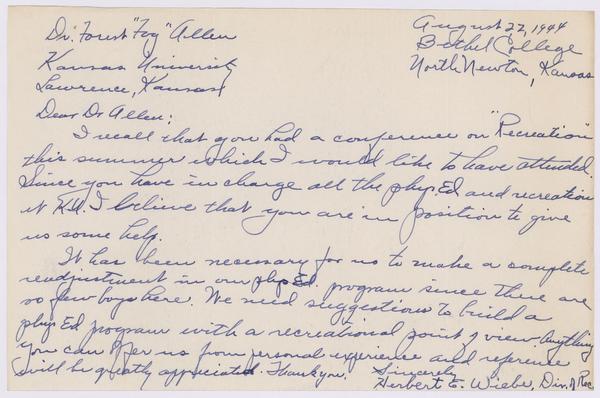 August 22, 1944
Bethel College
North Newton, Kansas
Dr. Forest "Fog" Allen
Kansas University
Lawrence, Kansas
Dear Dr Allen:
I recall that you had a conference on "Recreation"
this summer which I would like to have attended.
Since you have in charge all the phys. Ed and recreation
at K.U. I believe that you are in position to give
us some help.
It has been necessary for us to make a complete
readjustment in our phys Ed. program since there are
so few boys here. We need suggestions to build a
phys Ed program with a recreational point of view. Anything
you can offer us from personal experience and reference
will be greatly appreciated. Thank you.
Sincerely
Herbert E. Wiebe, Dir. of Rec.